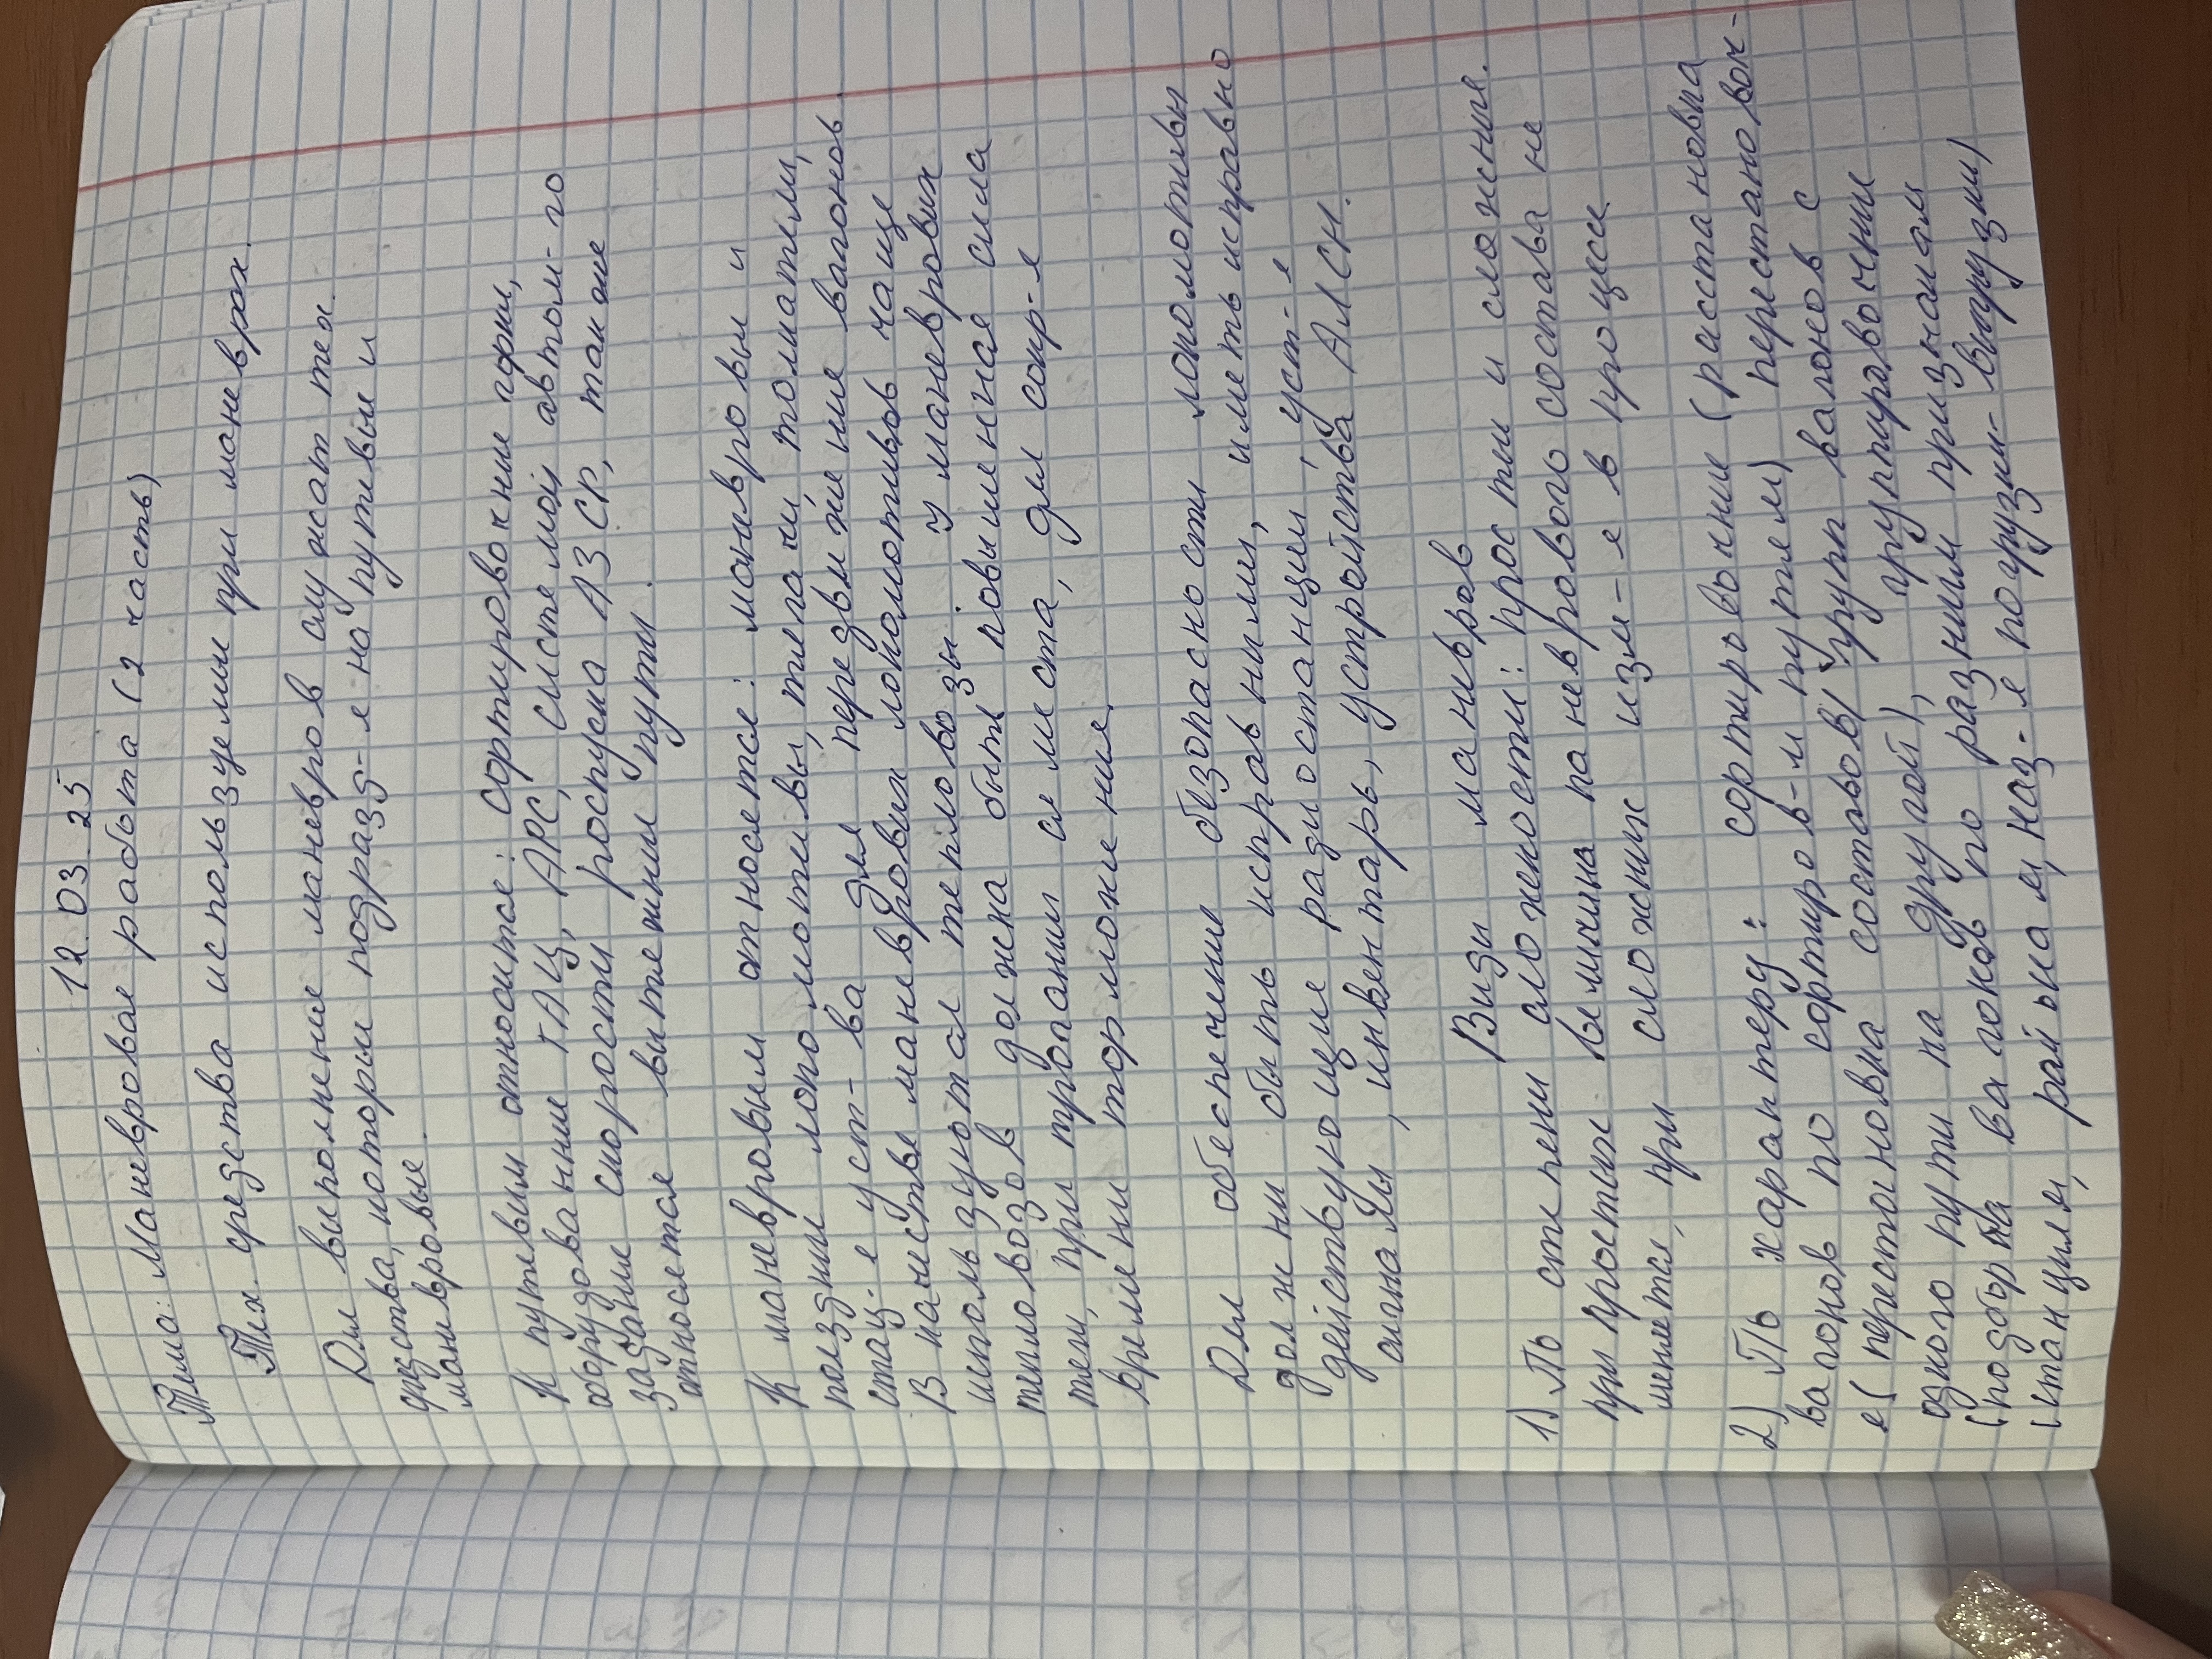 12.03.25
Тема: Маневровая работа (2 часть)
Тех. средства используемые при маневрах.
Для выполнения маневров служат тех.
средства, которые подразд-я на путевые и
маневровые.
К путевым относится: сортировочные горки,
оборудованные ГАЦ, АРС, системой автом-го
задание скорости роспуска АЗСР, также
относятся вытяжные пути.
К маневровым относятся: маневровые и
поездные локомотивы, тягачи, толкатели,
стац-е уст-ва для передвижение вагонов.
В качестве маневровых локомотивов чаще
используют тепловозы. У маневровых
тепловозов должна быть повышенная сила
тяги, при трогании с места, для сокр-я
времени торможения.
Для обеспечение безопасности локомотивы
должны быть исправными, иметь исправно
действующие радиостанции, уст-я
сигналы, инвентарь, устройства АЛСН.
Виды маневров
1) По степени сложности: простые и сложные.
при простых величина маневрового состава не
меняется, при сложных изм-я в процессе
2) По характеру: сортировочные (расстановка
вагонов по сортиров-м путям) перестановоч-
е (перестановка составов/групп вагонов с
одного пути на другой), группировочные
(подборка вагонов по разным признакам
(станциям, районам, наз-я погрузки-выгрузки)